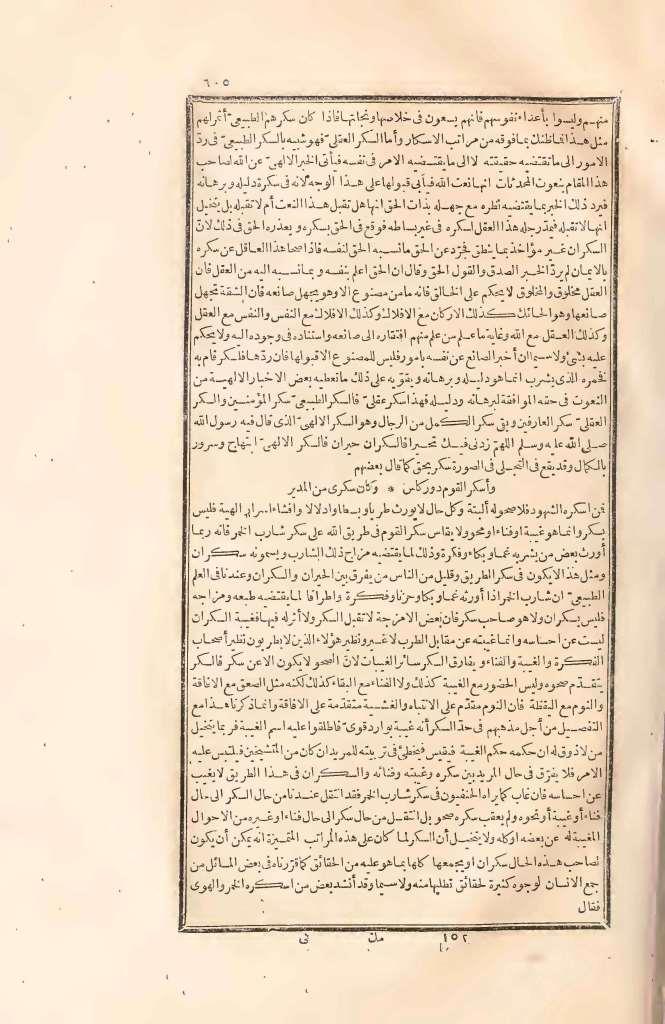 ٦٠٥
منهم وليسوا بأعداء نفوسهم فانهم يسعون فى خلاصها ونجاتها فاذا كان سكرهم الطبيعى أثمر لهم
مثل هذا فما ظنك بما فوقه من مراتب الاسكار وأما السكر العقلى فهو شبيه بالسكر الطبيعى فى ردّ
الامور الى ما تقتضيه حقيقته لا الى ما يقتضيه الامر فى نفسه فيأتى الخبر الالهى عن الله لصاحب
هذا المقام بنعوت المحدثات انها نعت الله فيأبى قبولها على هذا الوجه لانه فى سكرة دليله وبرهانه
فيرد ذلك الخبر بما يقتضيه نظره مع جهله بذات الحق انها هل تقبل هذا النعت أم لا تقبله بل يتخيل
انها لا تقبله فيمدّ رجله هذا العقل لسكره فى غير بساطه فوقع فى الحق بسكره ويعذره الحق فى ذلك لانّ
السكران غير مؤاخذ بما ينطق فجرّد عن الحق ما نسبه الحق لنفسه فاذا صحا هذا العاقل عن سكره
بالايمان لم يردّ الخبر الصدق والقول الحق وقال ان الحق اعلم بنفسه وبما نسبه اليه من العقل فان
العقل مخلوق والمخلوق لا يحكم على الخالق فانه ما من مصنوع الا وهو يجهل صانعه فان الشقة تجهل
صانعها وهو الحائك كذلك الاركان مع الافلاك وكذلك الافلاك مع النفس والنفس مع العقل
وكذلك العقل مع الله وغاية ما علم من علم منهم افتقاره الى صانعه واستناده فى وجوده اليه ولا يحكم
عليه بشئ ولا سيما ان أخبر الصانع عن نفسه بامور فليس للمصنوع الا قبولها فان ردّها فلسكر قام به
فخمره الذى يشرب انما هو دليله وبرهانه ويقويه على ذلك ما تعطيه بعض الاخبار الالهية من
النعوت فى حقه الموافقة لبرهانه ودليله فهذا سكر عقلى فالسكر الطبيعى سكر المؤمنين والسكر
العقلى سكر العارفين وبقى سكر الكمل من الرجال وهو السكر الالهى الذى قال فيه رسول الله
صلى الله عليه وسلم اللهم زدنى فيك تحيرا فالسكران حيران فالسكر الالهى ابتهاج وسرور
بالكمال وقد يقع فى التجلى فى الصورة سكر بحق كما قال بعضهم
وأسكر القوم دور كاس * وكان سكرى من المدير
فمن اسكره الشهود فلا صحو له ألبتة وكل حال لا يورث طربا وبسطا وادلالا وافشاء اسرار الهية فليس
بسكر وانما هو غيبة أو فناء أو محو ولا يقاس سكر القوم فى طريق الله على سكر شارب الخمر فانه ربما
أورث بعض من يشربه غما وبكاء وفكرة وذلك لما يقتضيه مزاج ذلك الشارب ويسمونه سكران
ومثل هذا لا يكون فى سكر الطريق وقليل من الناس من يفرق بين الحيران والسكران وعندنا فى العلم
الطبيعى ان شارب الخمر اذا أورثه غما وبكا وحزنا وفكرة واطراقا لما يقتضيه طبعه ومزاجه
فليس بسكران ولا هو صاحب سكر فان بعض الامزجة لا تقبل السكر ولا أثر له فيها فغيبة السكران
ليست عن احساسه وانما غيبته عن مقابل الطرب لا غير ونظير هؤلاء الذين لا يطربون نظير أصحاب
الفكرة والغيبة والفناء ويفارق السكر سائر الغيبات لانّ الصحو لا يكون الا عن سكر فالسكر
يتقدّم صحوه وليس الحضور مع الغيبة كذلك ولا الفناء مع البقاء كذلك لكنه مثل الصعق مع الافاقة
والنوم مع اليقظة فان النوم مقدّم على الانتباه والغشية متقدمة على الافاقة وانما ذكرنا هذا مع
التفصيل من أجل مذهبهم فى حدّ السكر أنه غيبة بوارد قوى فاطلقوا عليه اسم الغيبة فربما يتخيل
من لا ذوق له ان حكمه حكم الغيبة فيقيس فيخطئ فى تربيته للمريد ان كان من المتشيخين فيلتبس عليه
الامر فلا يفرق فى حال المريد بين سكره وغيبته وفنائه والسكران فى هذا الطريق لا يغيب
عن احساسه فان غاب كما يراه الحنفيون فى سكر شارب الخمر فقد انتقل عندنا من حال السكر الى حال
فناء أو غيبة أو محو ولم يعقب سكره صحو بل انتقل من حال سكر الى حال فناء أو غيره من الاحوال
المغيبة له عن بعضه أو كله ولا يتخيل أن السكر لما كان على هذه المراتب المتميزة انه يمكن أن يكون
لصاحب هذه الحال سكران أو يجمعها كلها بما هو عليه من الحقائق كما قرّرناه فى بعض المسائل من
جمع الانسان لوجوه كثيرة لحقائق تطلبها منه ولا سيما وقد أنشد بعض من اسكره الخمر والهوى
فقال
١٥٢ مك نى